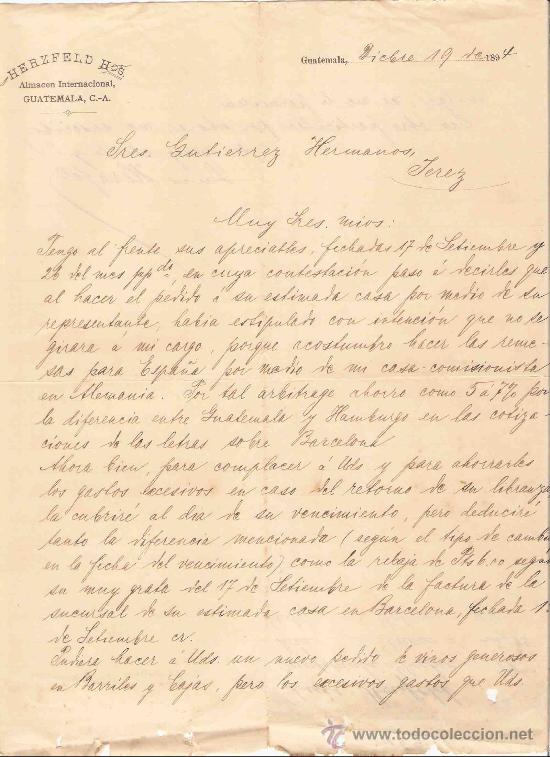 HERZFELD Hos.
Almacen Internacional,
GUATEMALA, C.-A.
Guatemala, Dicbre 19 de 1894
Sres. Gutierrez Hermanos,
Jerez
Muy Sres. mios:
Tengo al frente sus apreciables, fechadas 17 de Setiembre y
22 del mes ppdo, en cuya contestación paso á decirles que
al hacer el pedido á su estimada casa por medio de su
representante, habia estipulado con intención que no se
girara a mi cargo, porque acostumbro hacer las reme-
sas para España por medio de mi casa comisionista
en Alemania. Por tal arbitrage ahorro como 5 a 7% por
la diferencia entre Guatemala y Hamburgo en las cotiza-
ciones de las letras sobre Barcelona
Ahora bien, para complacer á Uds y para ahorrarles
los gastos escesivos en caso del retorno de su libranza
la cubriré al dia de su vencimiento, pero deduciré
tanto la diferencia mencionada (según el tipo de cambio
en la fecha del vencimiento) como la rebaja de Pts 6.00 según
su muy grata del 17 de Setiembre de la factura de la
sucursal de su estimada casa en Barcelona, fechada 1
de Setiembre cr.
Pudera hacer á Uds. un nuevo pedido de vinos generosos
en Barriles y Cajas, pero los escesivos gastos que Uds.
todocoleccion.net